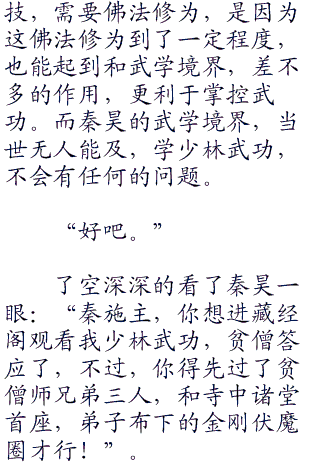 技，需要佛法修为，是因为
这佛法修为到了一定程度，
也能起到和武学境界，差不
多的作用，更利于掌控武
功。而秦昊的武学境界，当
世无人能及，学少林武功，
不会有任何的问题。
“好吧。”
了空深深的看了秦昊一
眼：“秦施主，你想进藏经
阁观看我少林武功，贫僧答
应了，不过，你得先过了贫
僧师兄弟三人，和寺中诸堂
首座，弟子布下的金刚伏魔
圈才行！”。